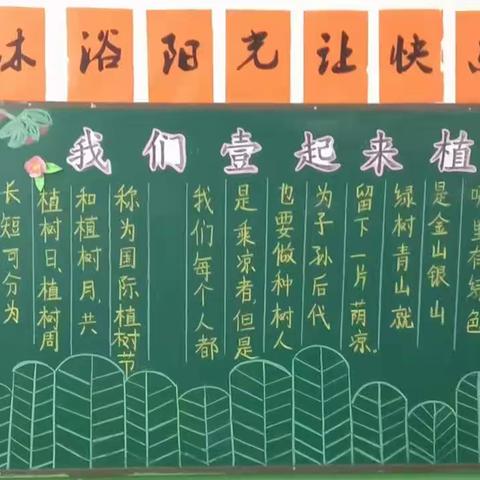 沐浴阳光让快
我们壹起来植
长短可分为
植树日、植树周
和植树月,共
称为国际植树节
我们每个人都
是乘凉者,但是
也要做种树人
为子孙后代
留下一片荫凉。
绿树青山就
是金山银山
哪里有绿色